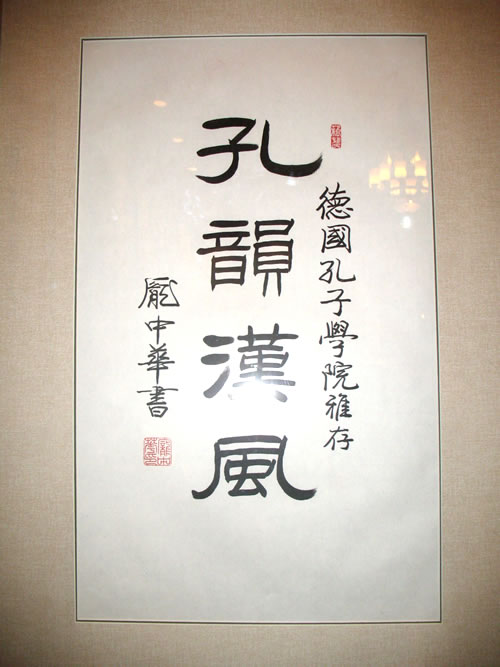 德國孔子學院雅存
孔韻漢風
龐中華書